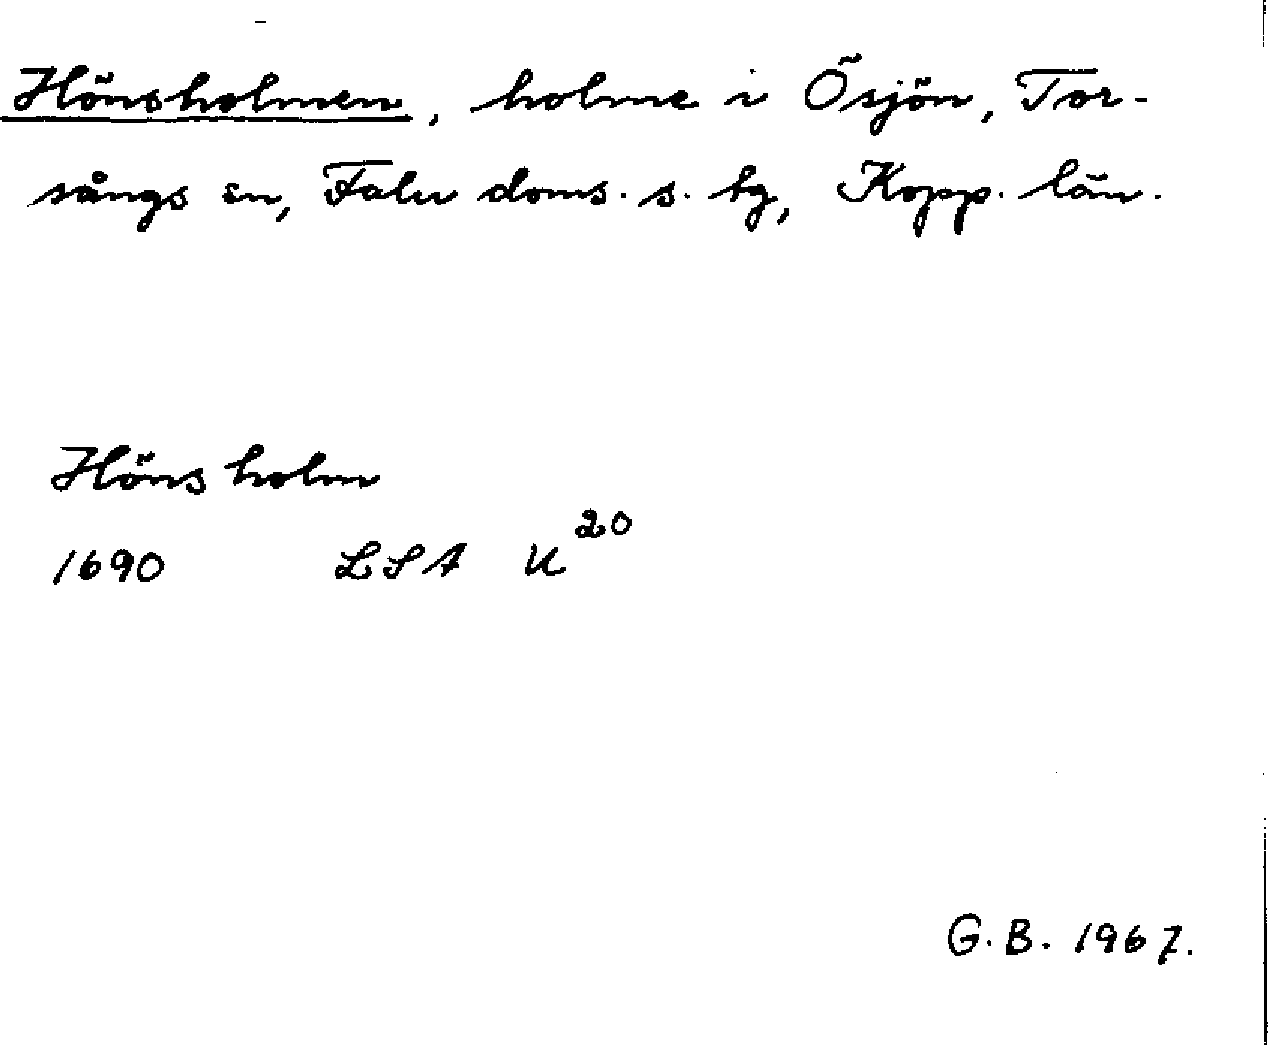 Hönsholmen, holme i Ösjön, Tor-
sångs sn, Falu doms. s. tg, Kopp. län.
Hönsholm
1690 LSA U²⁰
G.B. 1967.